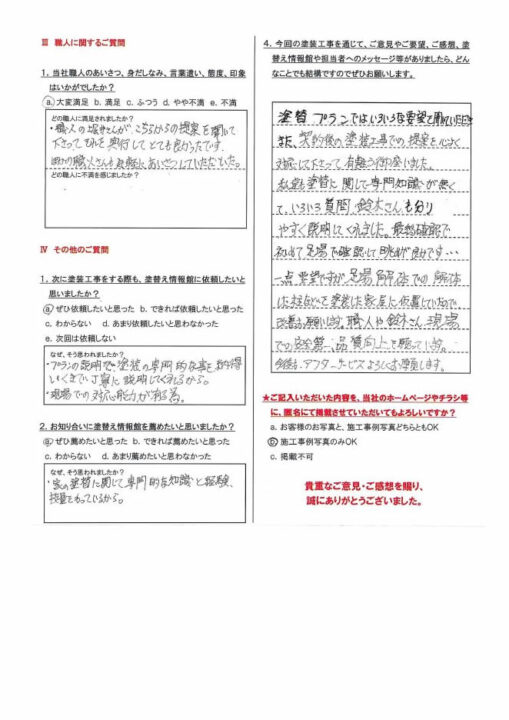 Ⅲ 職人に関するご質問
1. 当社職人のあいさつ、身だしなみ、言葉遣い、態度、印象
はいかがでしたか？
a. 大変満足 b. 満足 c. ふつう d. やや不満 e. 不満
どの職人に満足されましたか？
・職人の さんが、こちらからの提案を聞いて
下さって それを実行して とても良かったです。
ほかの職人さんも 気軽に あいさつしていただいた。
どの職人に不満を感じましたか？
Ⅳ その他のご質問
1. 次に塗装工事をする際も、塗替え情報館に依頼したいと
思いましたか？
a. ぜひ依頼したいと思った b. できれば依頼したいと思った
c. わからない d. あまり依頼したいと思わなかった
e. 次回は依頼しない
なぜ、そう思われましたか？
・プランの説明で 塗装の専門的な事を 納得
いくまで 丁寧に 説明してくれるから。
・現場での対応能力が有る為。
2. お知り合いに塗替え情報館を薦めたいと思いましたか？
a. ぜひ薦めたいと思った b. できれば薦めたいと思った
c. わからない d. あまり薦めたいと思わなかった
なぜ、そう思われましたか？
・家の塗替に関して専門的な知識と経験、
技量をもっているから。
4. 今回の塗装工事を通じて、ご意見やご要望、ご感想、塗
替え情報館や担当者へのメッセージ等がありましたら、どん
なことでも結構ですのでぜひお願いします。
塗替プランではいろいろな要望を聞いていただき
また、契約後の塗装工事での提案も心よく
対応して下さって 有難う御座いました。
私達も塗替に関して専門知識が無く
て、いろいろ質問、鈴木さんも分り
やすく説明してくれました。最終確認で
初めて足場で確認して 良かったです…
一点 要望ですが 足場解体での解体
塗装した家屋に 放置していたので、
改善お願いします。職人や鈴木さん 現場
での安全第一、品質向上を願っています。
今後も アフターサービスよろしくお願いします。
★ご記入いただいた内容を、当社のホームページやチラシ等
に、匿名にて掲載させていただいてもよろしいですか？
a. お客様のお写真と、施工事例写真どちらともOK
b. 施工事例写真のみOK
c. 掲載不可
貴重なご意見・ご感想を賜り、
誠にありがとうございました。